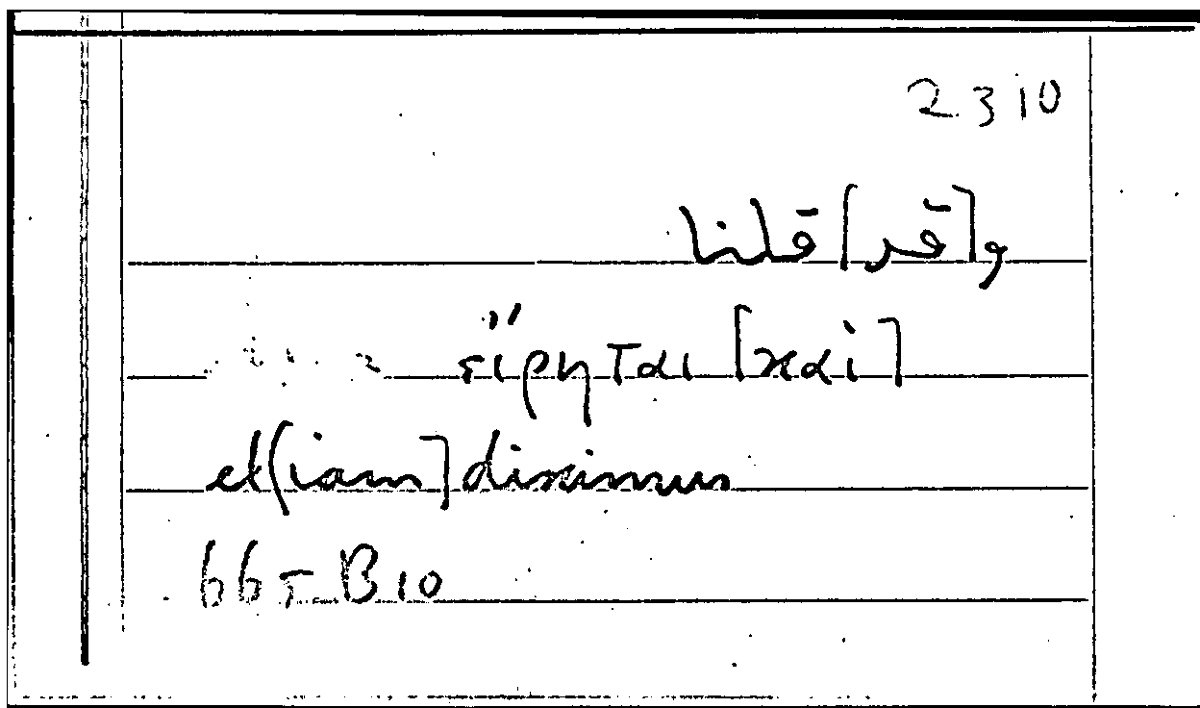 2310
و[قد] قلنا
εἴρηται [καὶ]
et [iam] diximus
665 B 10